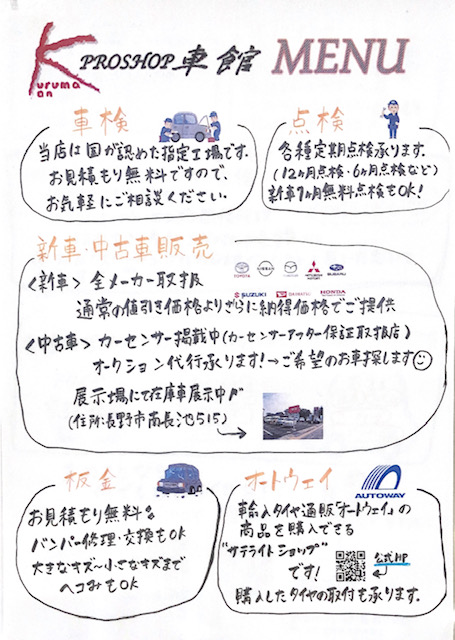 Kuruma Kan PROSHOP 車館 MENU
車検
当店は国が認めた指定工場です。
お見積もり無料ですので、
お気軽にご相談ください。
点検
各種定期点検承ります。
(12ヶ月点検・6ヶ月点検など)
新車1ヶ月無料点検もOK!
新車・中古車販売
TOYOTA NISSAN MAZDA MITSUBISHI MOTORS SUBARU
<新車> 全メーカー取扱
SUZUKI DAIHATSU HONDA
通常の値引き価格よりさらに納得価格でご提供
<中古車> カーセンサー掲載中(カーセンサーアフター保証取扱店)
オークション代行承ります!→ご希望のお車探します
展示場にて在庫車展示中
(住所:長野市南長池515)
板金
お見積もり無料
バンパー修理・交換もOK
大きなキズ〜小さなキズまで
ヘコみもOK
オートウェイ
AUTOWAY
輸入タイヤ通販「オートウェイ」の
商品を購入できる
"サテライトショップ"
です!
公式HP
購入したタイヤの取付も承ります。